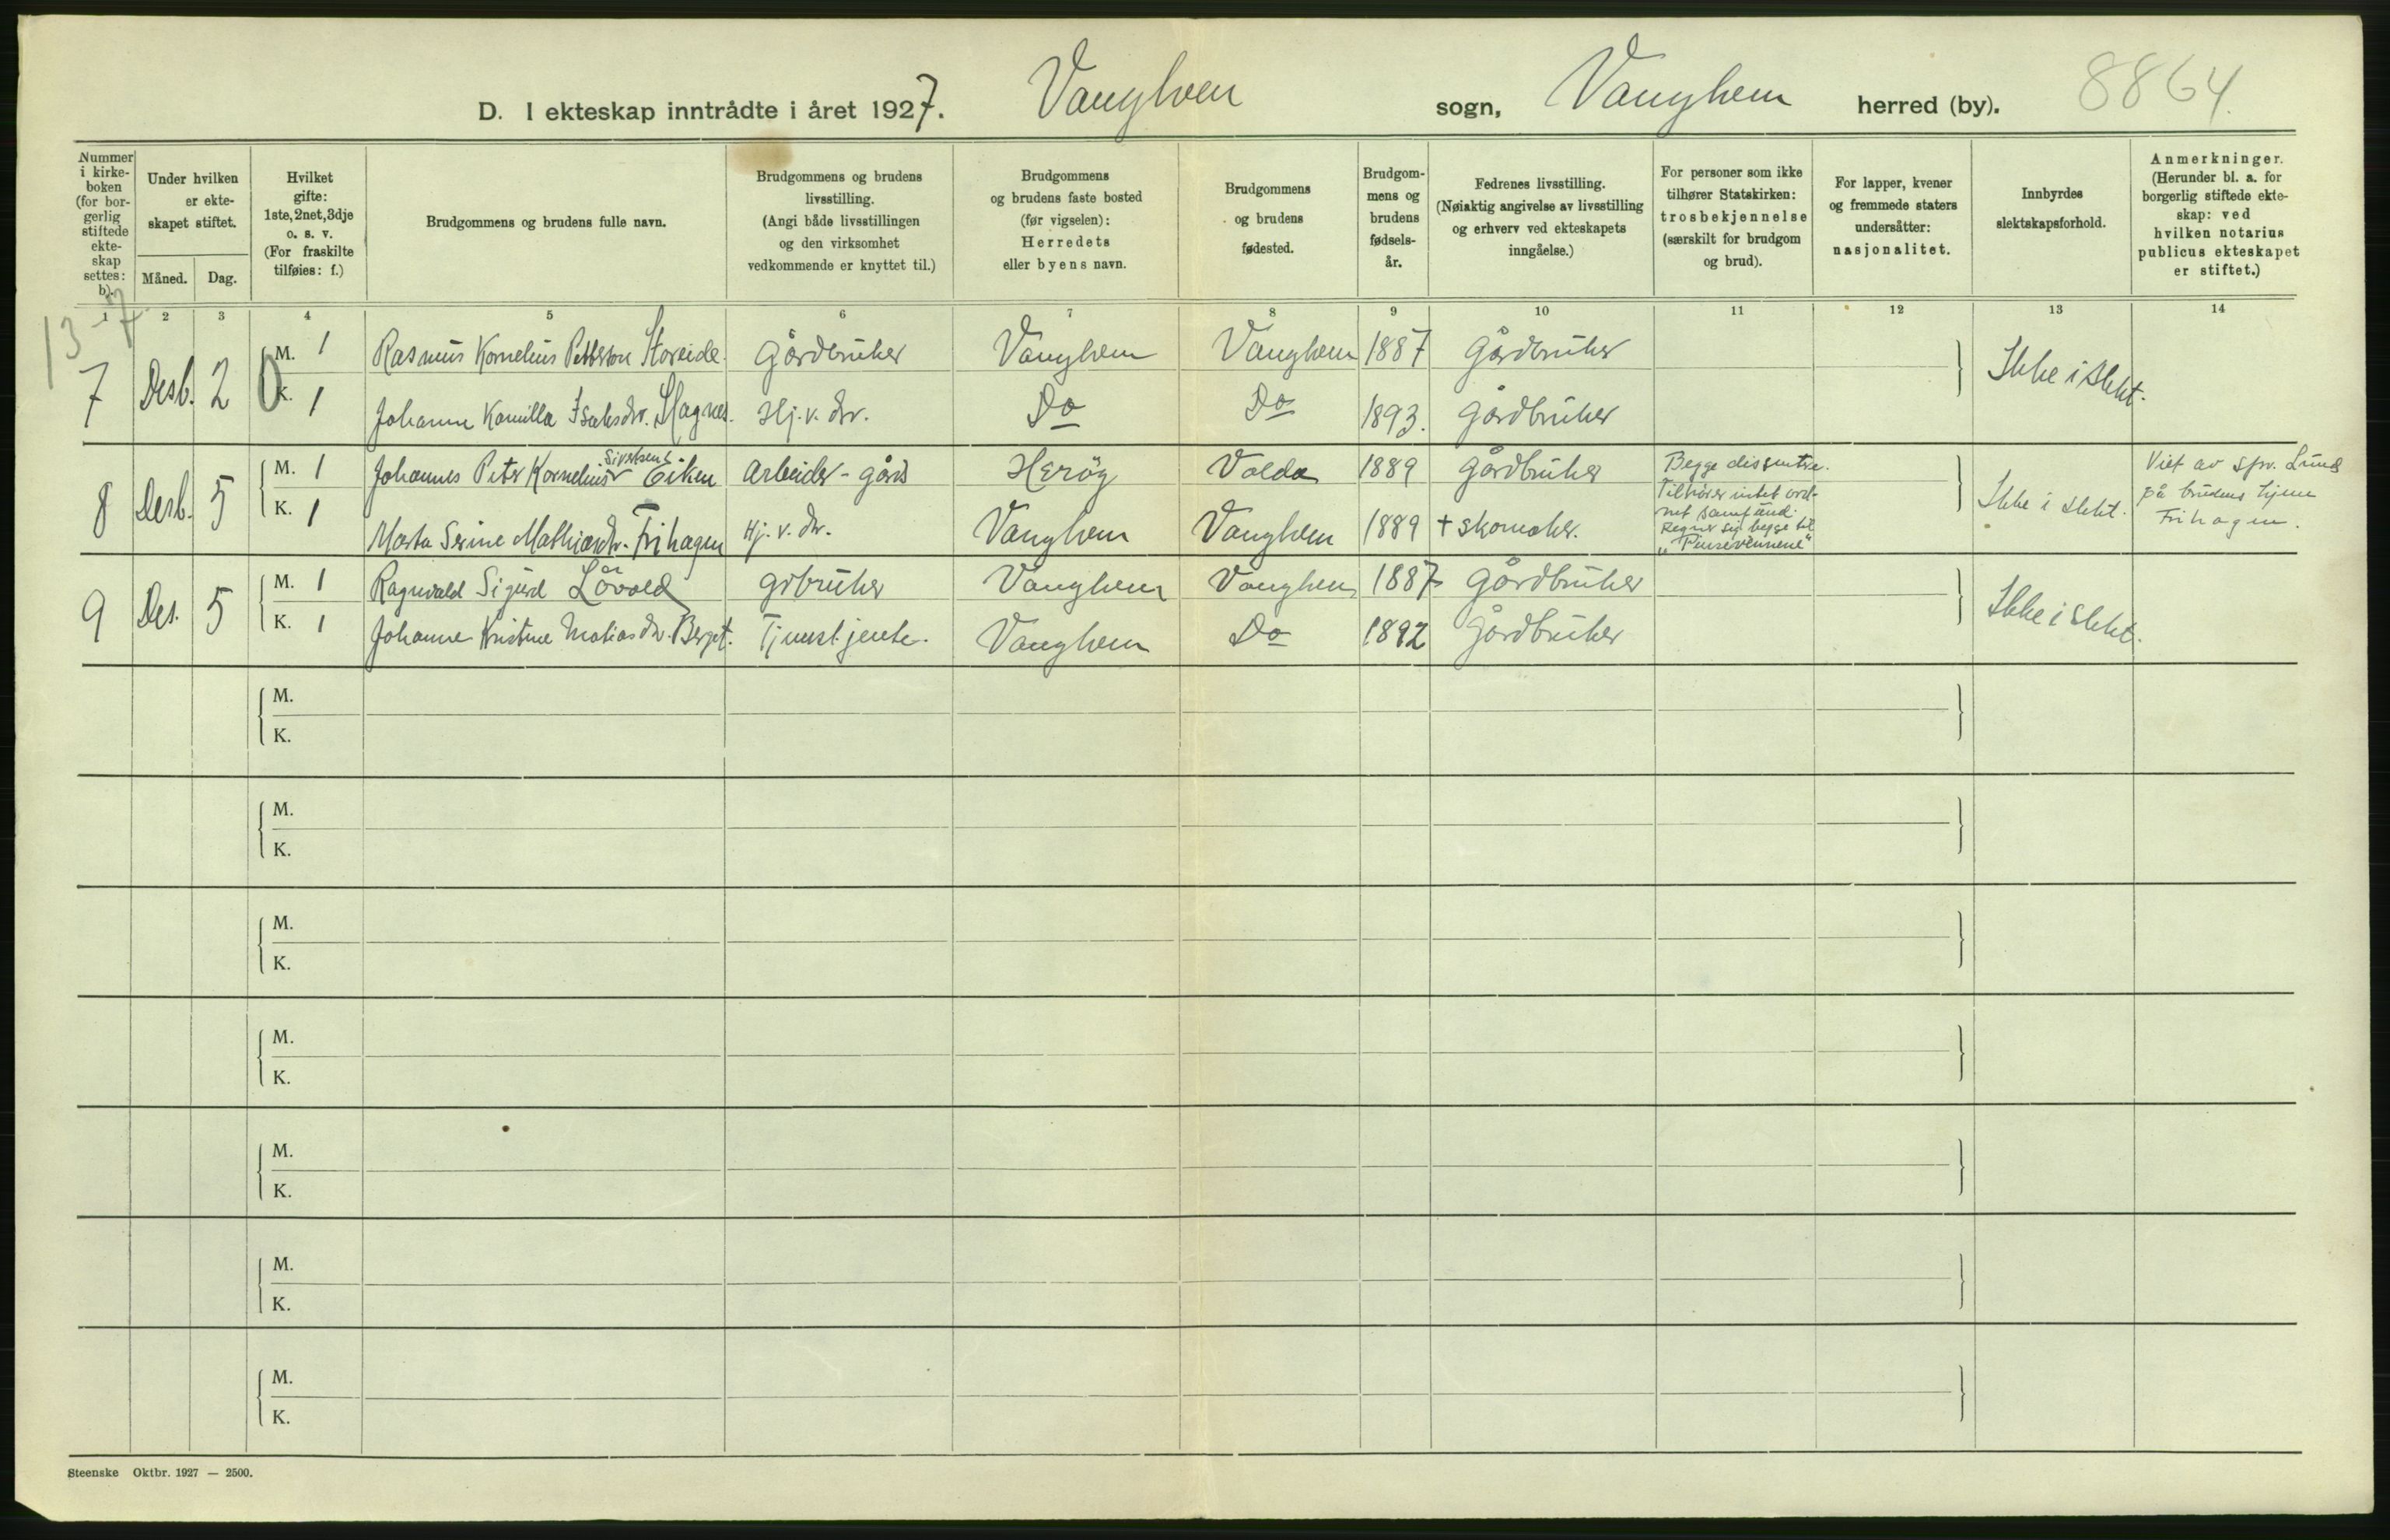 D. I ekteskap inntrådte i året 1927. Vanylven sogn, Vanylven herred (by). 8864.
Nummer i kirke-boken (for bor-gerlig stiftede ekte-skap settes: b).
Under hvilken er ekte-skapet stiftet.
Måned. Dag.
Hvilket gifte: 1ste, 2net, 3dje o. s. v. (For fraskilte tilføies: f.)
Brudgommens og brudens fulle navn.
Brudgommens og brudens livsstilling. (Angi både livsstillingen og den virksomhet vedkommende er knyttet til.)
Brudgommens og brudens faste bosted (før vigselen): Herredets eller byens navn.
Brudgommens og brudens fødested.
Brudgom-mens og brudens fødsels-år.
Fedrenes livsstilling. (Nøiaktig angivelse av livsstilling og erhverv ved ekteskapets inngåelse.)
For personer som ikke tilhører Statskirken: trosbekjennelse (særskilt for brudgom og brud).
For lapper, kvener og fremmede staters undersåtter: nasjonalitet.
Innbyrdes slektskapsforhold.
Anmerkninger. (Herunder bl. a. for borgerlig stiftede ekte-skap: ved hvilken notarius publicus ekteskapet er stiftet.)
1 2 3 4 5 6 7 8 9 10 11 12 13 14
13-7
7 Desb. 2 0
M. 1 Rasmus Kornelius Petterson Storeide Gårdbruker Vanylven Vanylven 1887 Gårdbruker Ikke i slekt.
K. 1 Johanne Kamilla Isaksdr. Hagnes. Hj. v. dr. Do Do 1893. Gårdbruker
8 Desb. 5
M. 1 Johannes Peter Kornelius Sivertsen Eiken Arbeider - gårds Herøy Volda 1889 Gårdbruker
K. 1 Marta Serine Mathiasdr. Frihagen Hj. v. dr. Vanylven Vanylven 1889 + skomaker.
Begge dissentere.
Tilhører intet ord-
net samfund.
Regner sig begge til
"Pinsevennene"
Ikke i slekt.
Viet av spr. Lund
på brudens hjem
Frihagen.
9 Des. 5
M. 1 Ragnvald Sigurd Løvold grbruker Vanylven Vanylven 1887 Gårdbruker Ikke i slekt.
K. 1 Johanne Kristine Matiasdr. Berget. Tjenestjente. Vanylven Do 1892 Gårdbruker
M.
K.
M.
K.
M.
K.
M.
K.
M.
K.
M.
K.
M.
K.
Steenske Oktbr. 1927 — 2500.